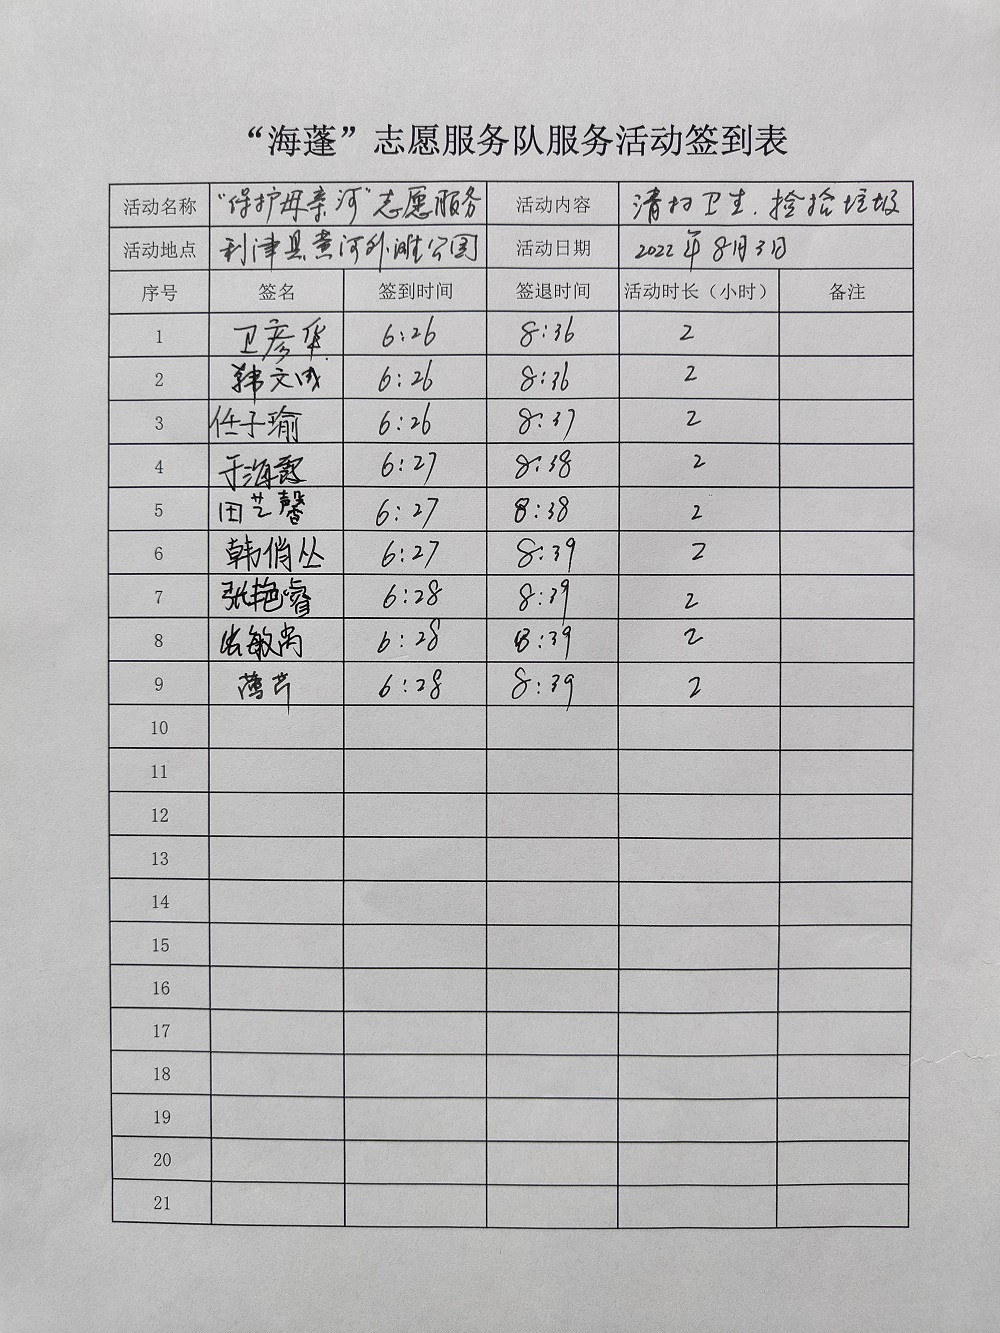 “海蓬”志愿服务队服务活动签到表
活动名称 “保护母亲河”志愿服务 活动内容 清扫卫生.捡拾垃圾
活动地点 利津县黄河外滩公园 活动日期 2022年8月3日
序号 签名 签到时间 签退时间 活动时长（小时） 备注
1 卫彦华 6:26 8:36 2
2 韩文成 6:26 8:36 2
3 任子瑜 6:26 8:37 2
4 于海霞 6:27 8:38 2
5 田艺馨 6:27 8:38 2
6 韩俏丛 6:27 8:39 2
7 张艳睿 6:28 8:39 2
8 敏 6:28 8:39 2
9 6:28 8:39 2
10
11
12
13
14
15
16
17
18
19
20
21